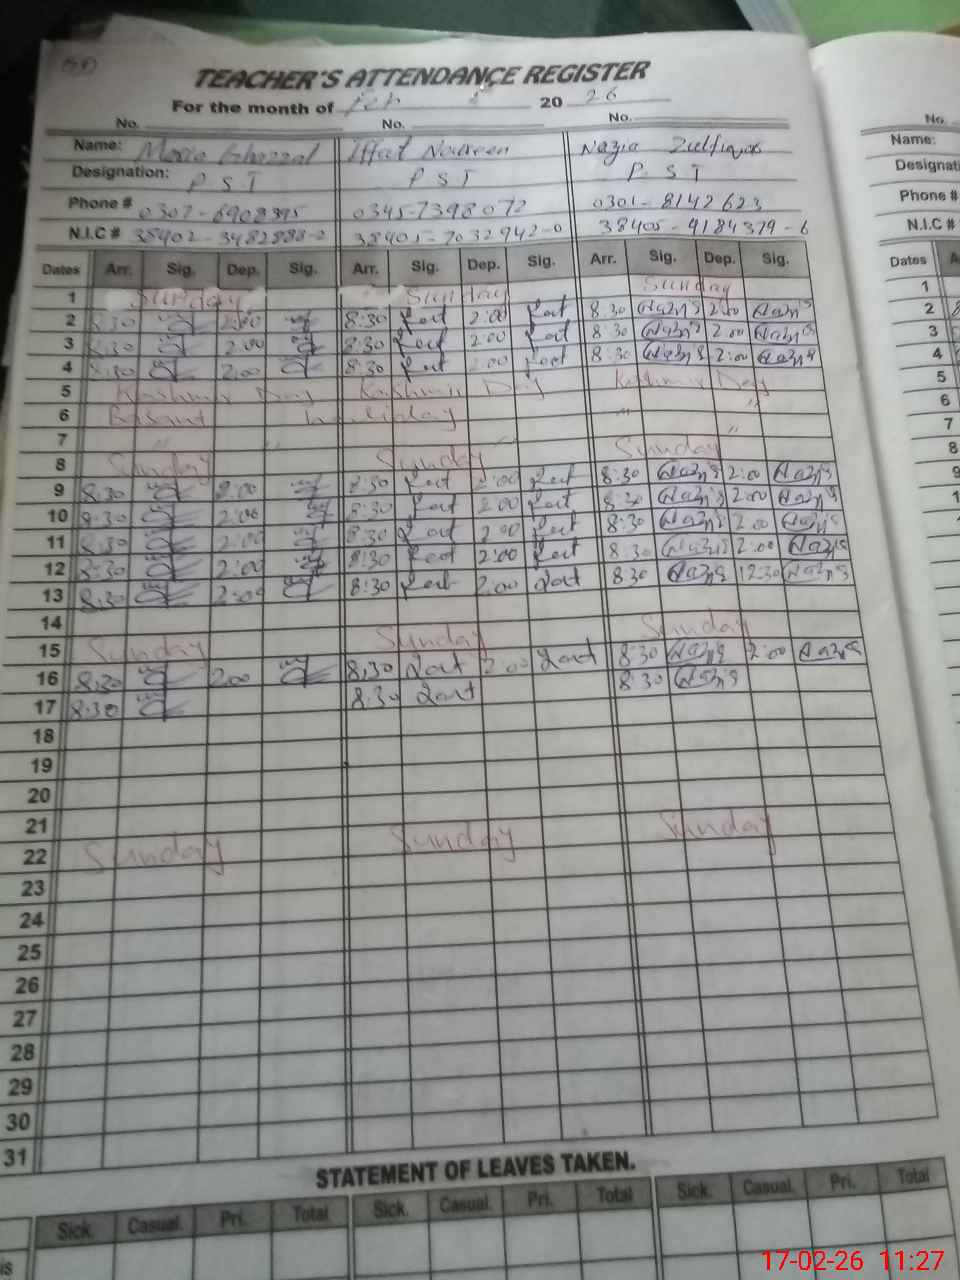 TEACHER'S ATTENDANCE REGISTER
For the month of Feb 20 26
No. No. No. No.
Name: Maria Ghazzal Iffat Naureen Nazia Zulfiqar Name:
Designation: P S T P S T P S T Designati
Phone # 0307-6908395 0345-7398072 0301-8142623 Phone #
N.I.C # 38402-3482888-2 38405-7032942-0 38405-4184379-6 N.I.C #
Dates Arr. Sig. Dep. Sig. Arr. Sig. Dep. Sig. Arr. Sig. Dep. Sig. Dates A
1 Sunday Sunday Sunday 1
2 8:30 2:00 8:30 2:00 8:30 2:00 2
3 8:30 2:00 8:30 2:00 8:30 2:00 3
4 8:30 2:00 8:30 2:00 8:30 2:00 4
5 Kashmir Day Kashmir Day Kashmir Day 5
6 Basant holiday " " 6
7 " " " " 7
8 Sunday Sunday Sunday 8
9 8:30 2:00 8:30 2:00 8:30 2:00 9
10 8:30 2:00 8:30 2:00 8:30 2:00 1
11 8:30 2:00 8:30 2:00 8:30 2:00 1
12 8:30 2:00 8:30 2:00 8:30 2:00 1
13 8:30 2:00 8:30 2:00 8:30 12:30 1
14
15 Sunday Sunday Sunday
16 8:30 2:00 8:30 2:00 8:30 2:00
17 8:30 8:30 8:30
18
19
20
21
22 Sunday Sunday Sunday
23
24
25
26
27
28
29
30
31
STATEMENT OF LEAVES TAKEN.
Sick. Casual. Pri. Total Sick. Casual. Pri. Total Sick. Casual. Pri. Total
is
17-02-26 11:27